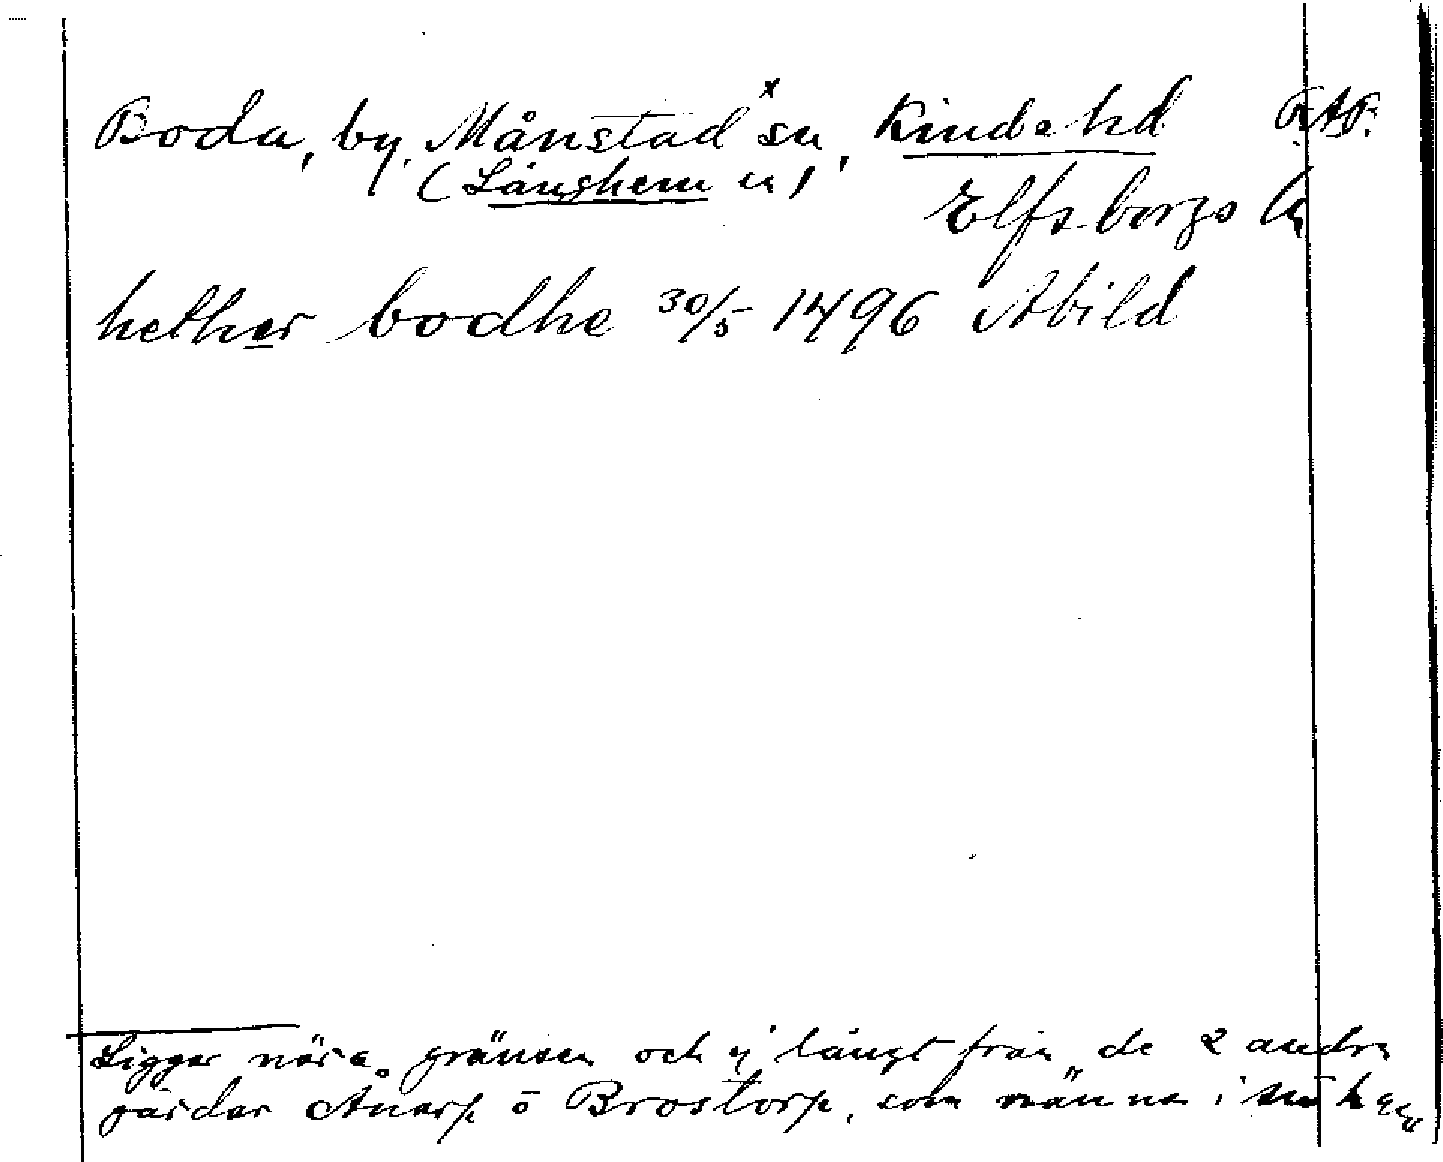 Boda, by, Månstad x sn, Kinds hd R.A.P.
(Länghem sn)
Elfsborgs län
hether bodhe 30/5 1496 Abild
Ligger nära gränsen och ej långt från de 2 andra
gårdar Anarp o Brostorp, som nämna i